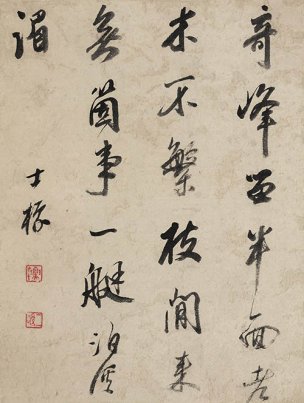 奇峰留半面老
木不繁枝閒來
無箇事一艇泊溪
湄
士標